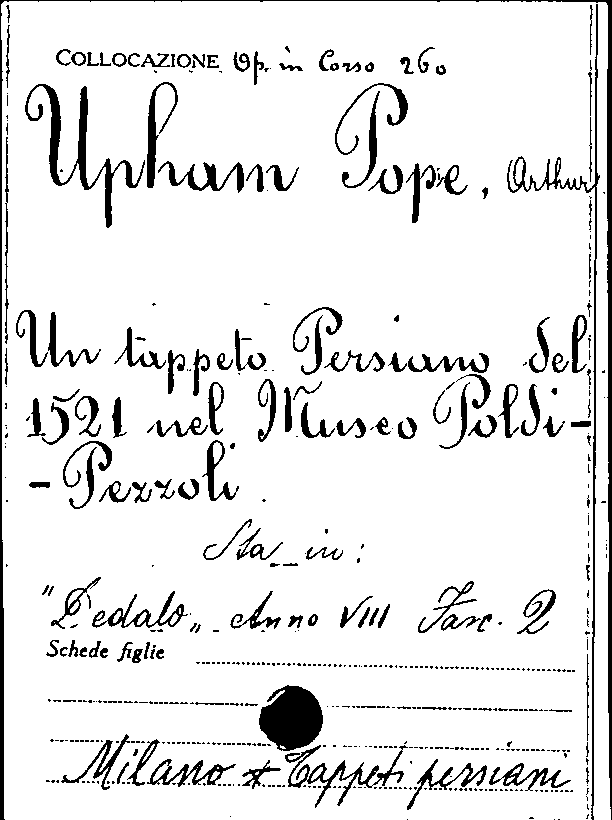 COLLOCAZIONE Op. in Corso 260
Upham Pope, Arthur
Un tappeto Persiano del
1521 nel Museo Poldi-
-Pezzoli.
Sta in:
"Dedalo" Anno VIII Fasc. 2
Schede figlie
Milano * Tappeti persiani